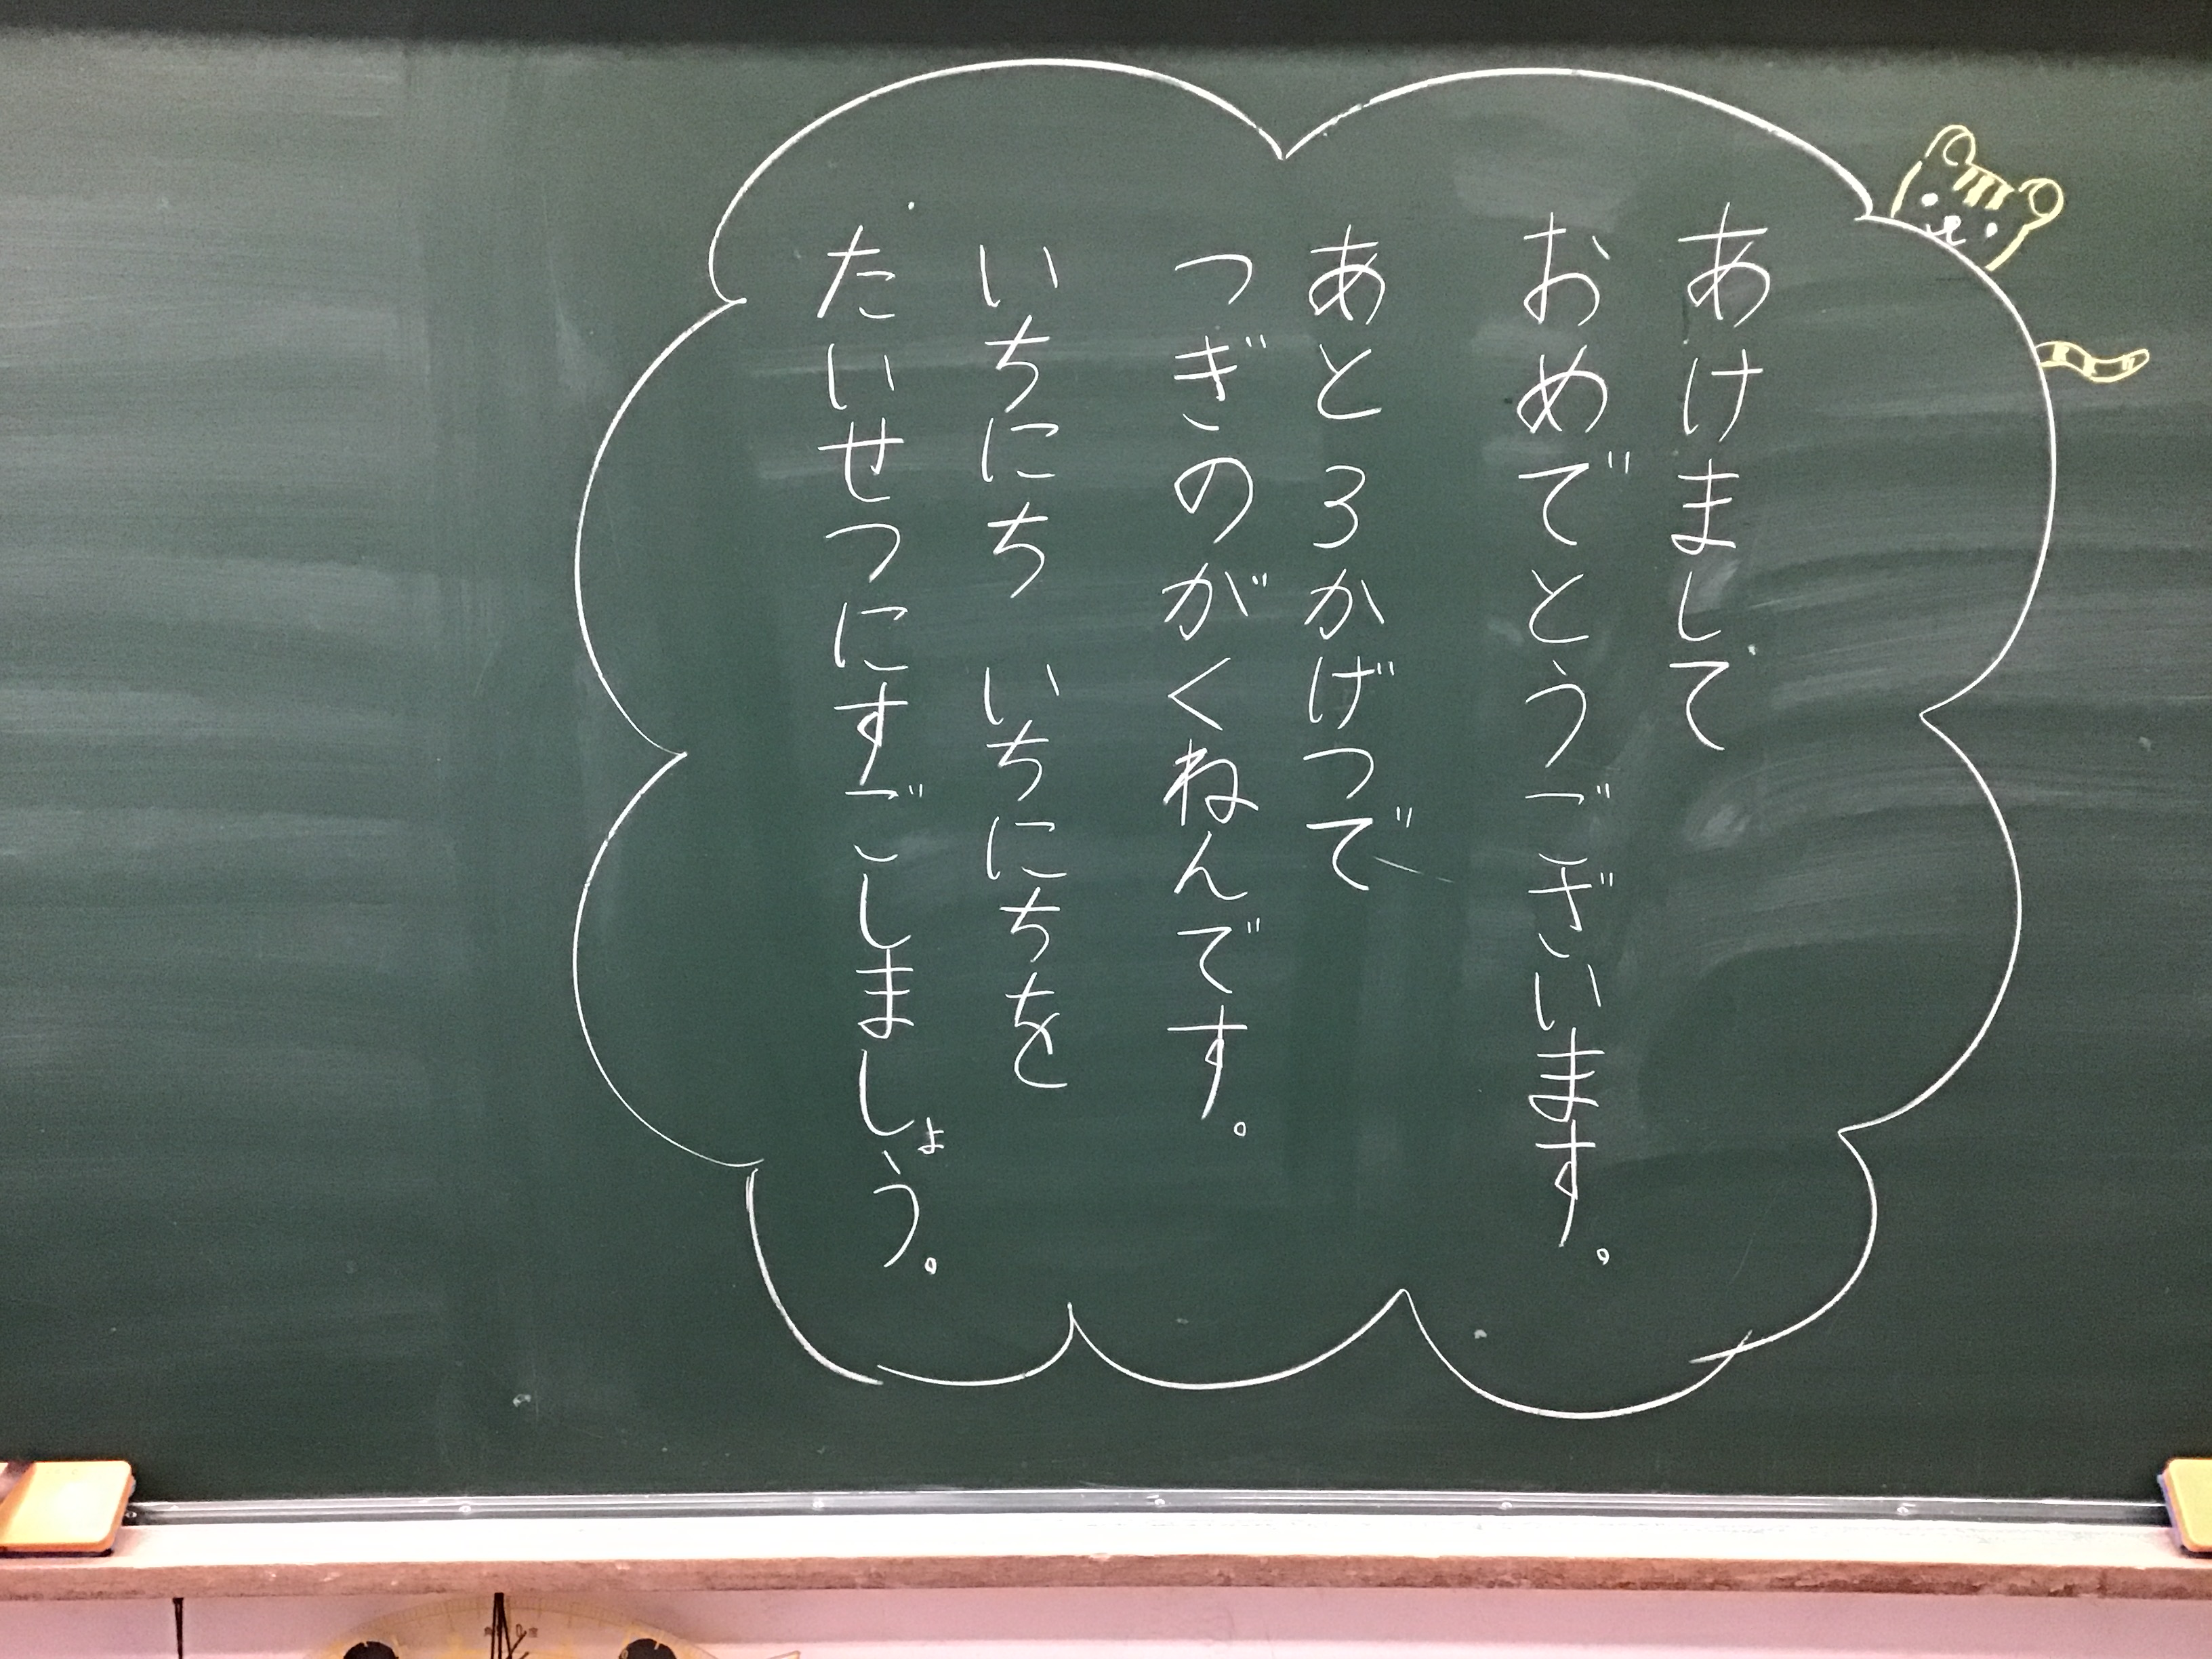 あけまして
おめでとうございます。
あと3かげつで
つぎのがくねんです。
いちにち　いちにちを
たいせつにすごしましょう。